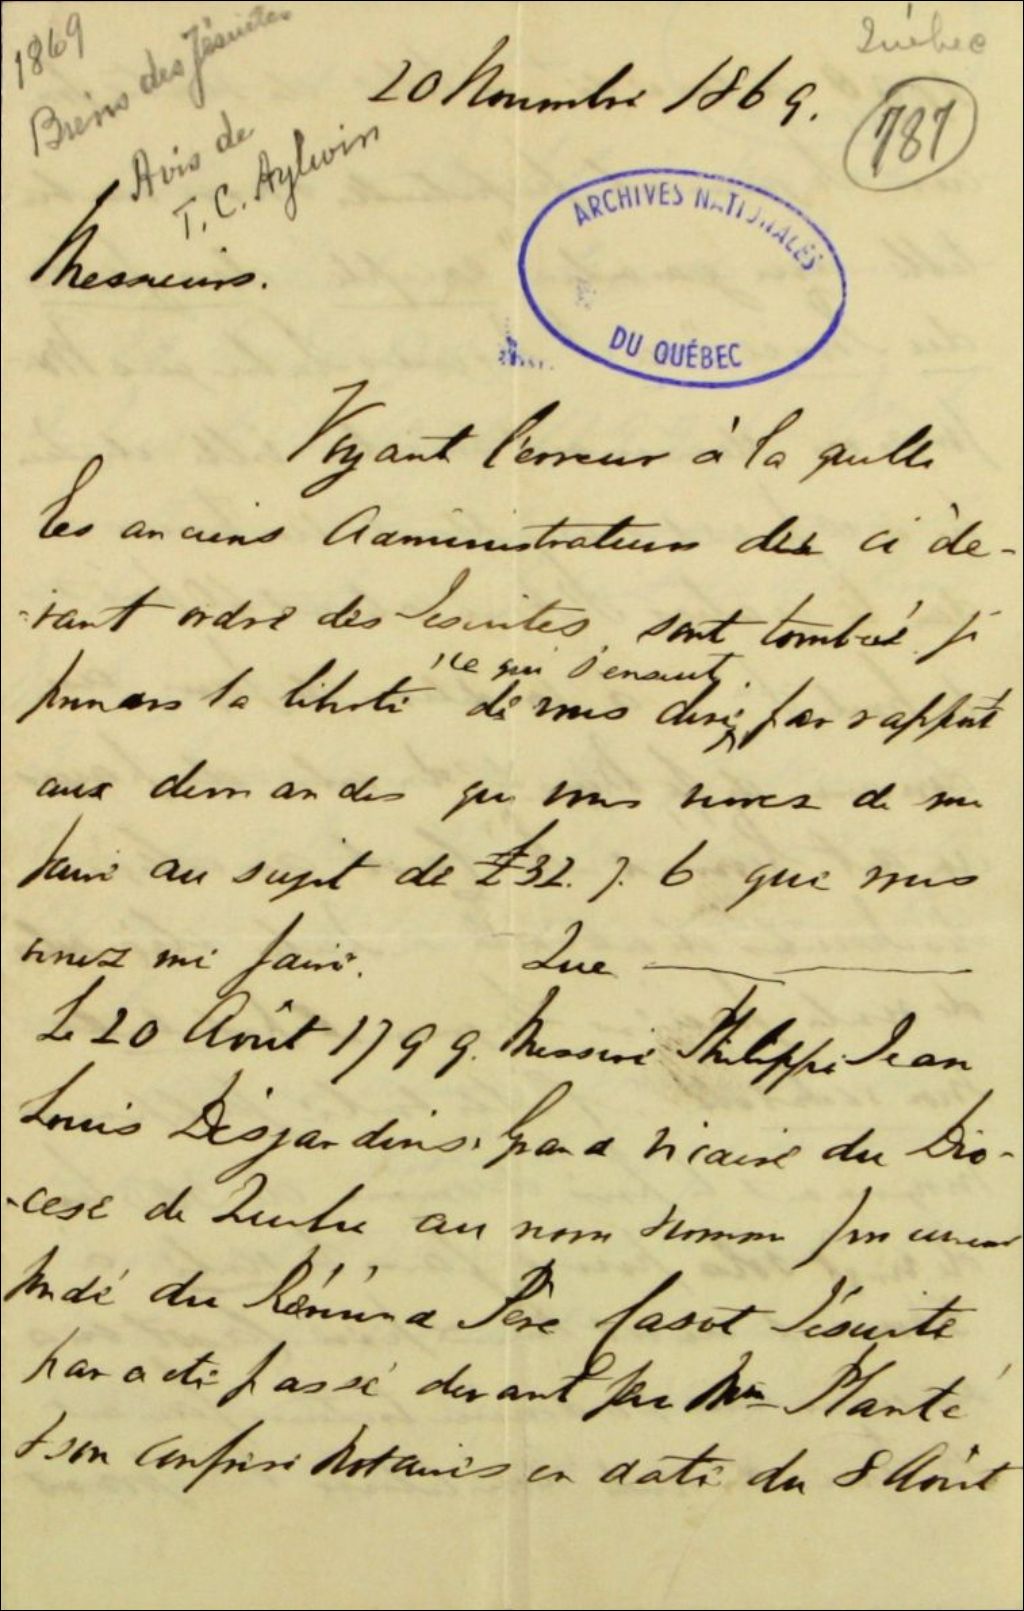 1869
Québec
Biens des Jésuites
20 Novembre 1869.
787
Avis de
T. C. Aylwin
ARCHIVES NATIONALES
DU QUÉBEC
Messieurs.
Voyant l'erreur à la quelle
les anciens Administrateurs des ci de-
-vant ordre des Jesuites sont tombés je
ce qui s'ensuit
prends la liberté de vous dire par rapport
aux demandes que vous venez de me
faire au sujet de £32. 7. 6 que vous
venez me faire. Que
Le 20 Août 1799. Messire Philippe Jean
Louis Desjardins. Grand Vicaire du Dio-
-cese de Quebec au nom comme procureur
fondé du Révérend Père Casot Jésuite
par acte passé devant feu Mtre Planté
& son confrere Notaires en date du 8 Août